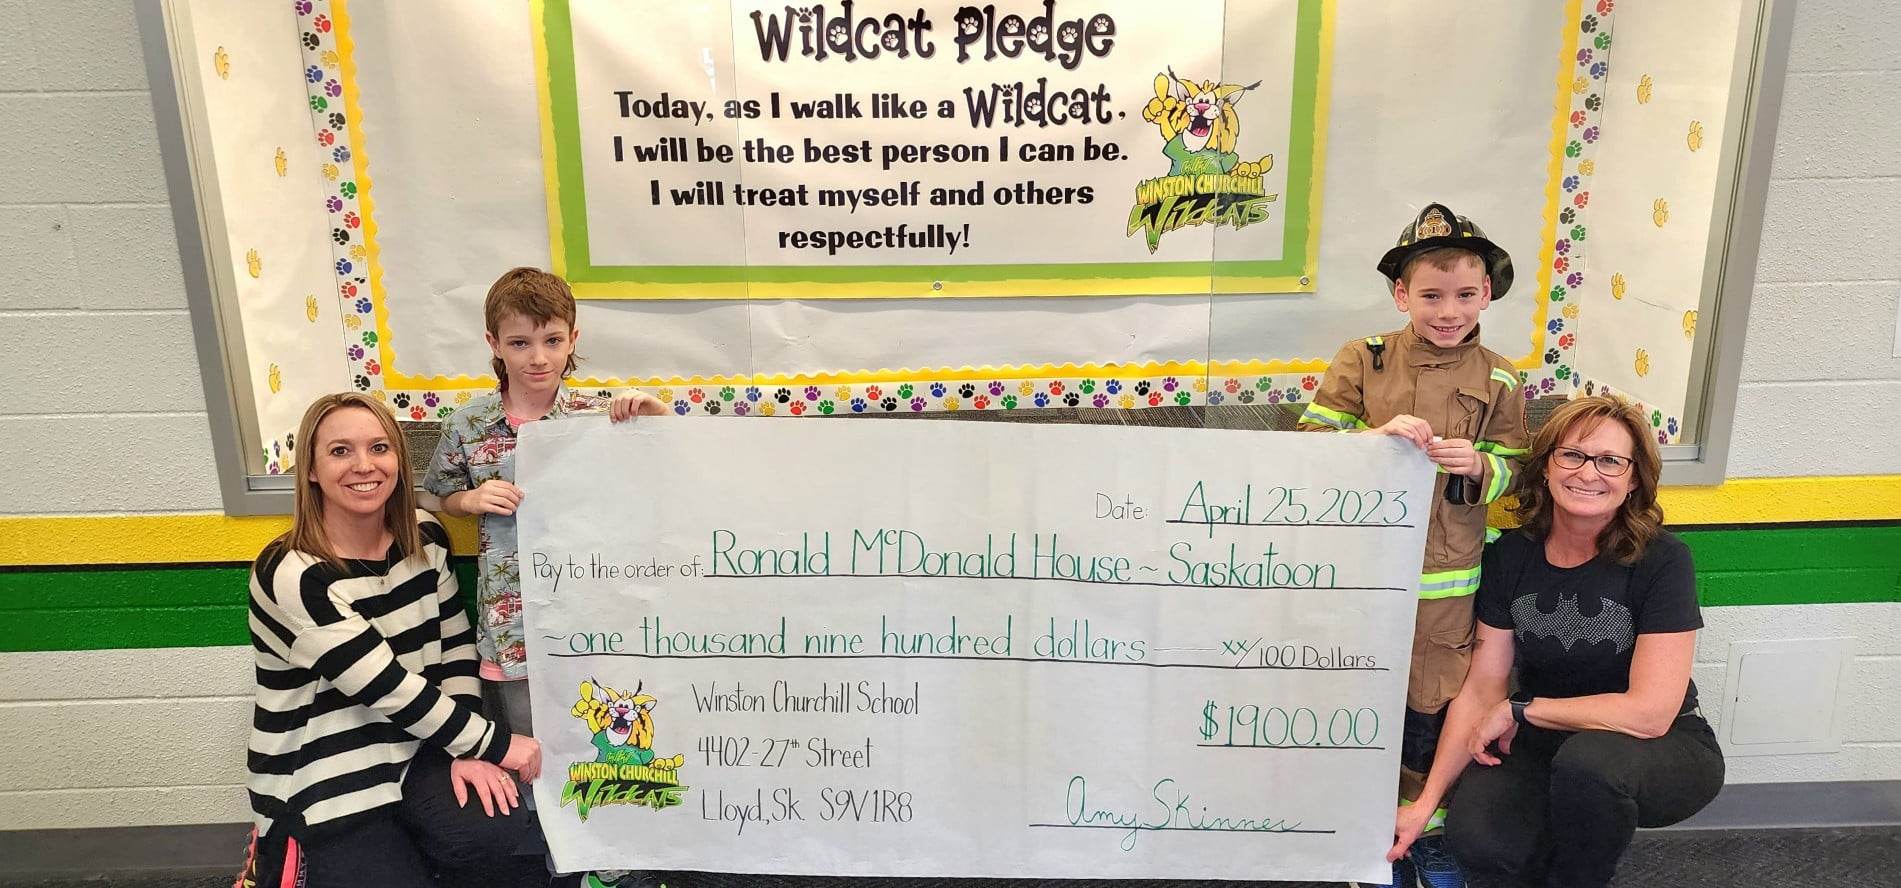 Wildcat Pledge
Today, as I walk like a Wildcat,
I will be the best person I can be.
I will treat myself and others
respectfully!
WINSTON CHURCHILL
WILDCATS
Date: April 25, 2023
Pay to the order of: Ronald McDonald House ~ Saskatoon
~one thousand nine hundred dollars xx/100 Dollars
Winston Churchill School
$1900.00
4402-27th Street
Lloyd, Sk. S9V1R8
Amy Skinner
WINSTON CHURCHILL
WILDCATS